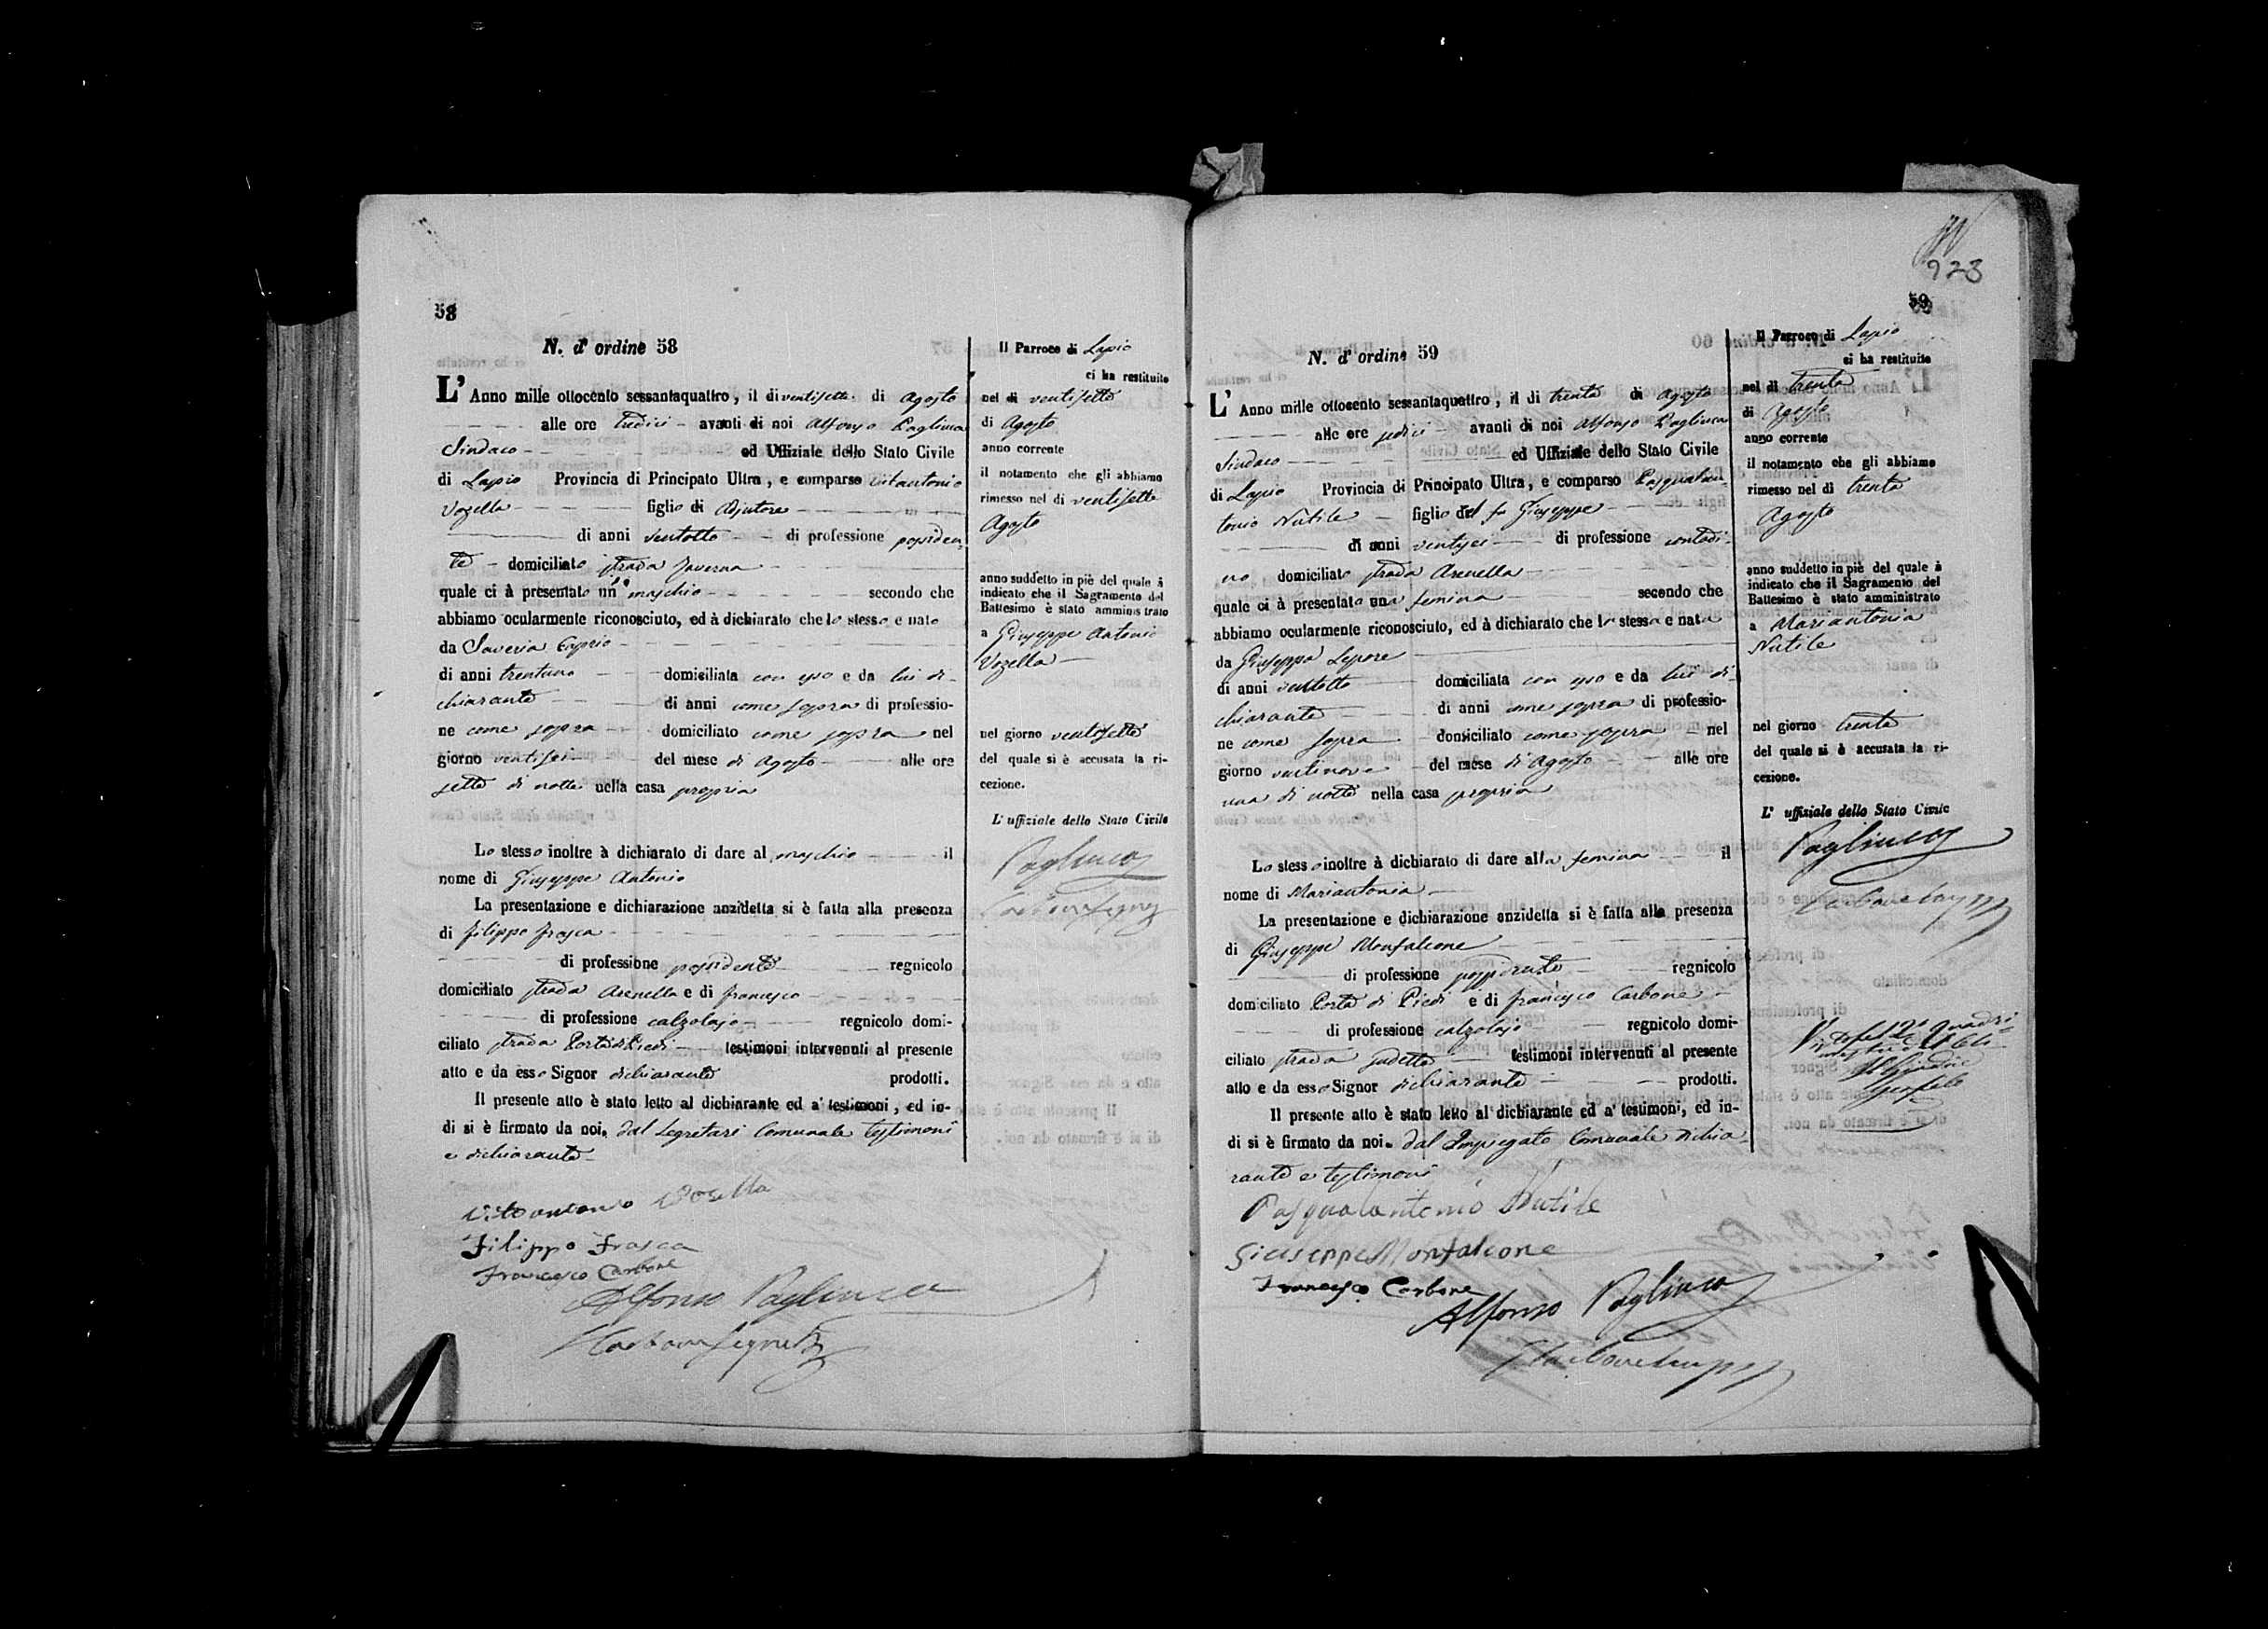 58
N. d' ordine 58
L' Anno mille ottocento sessantaquattro, il di ventisette di Agosto
alle ore tredici avanti di noi Alfonso Pagliuca
Sindaco ed Uffiziale dello Stato Civile
di Lapio Provincia di Principato Ultra, e comparso Vitantonio
Vozella figlio di Adjutore
di anni ventotto di professione possiden
te domiciliato strada Taverna
quale ci à presentato un maschio secondo che
abbiamo ocularmente riconosciuto, ed à dichiarato che lo stesso e nato
da Saveria Caprio
di anni trentuno domiciliata con esso e da lui di-
chiarante di anni come sopra di professio-
ne come sopra domiciliato come sopra nel
giorno ventisei del mese di Agosto alle ore
sette di notte nella casa propria
Lo stesso inoltre à dichiarato di dare al maschio il
nome di Giuseppe Antonio
La presentazione e dichiarazione anzidetta si è fatta alla presenza
di Filippo Frasca
di professione possidente regnicolo
domiciliato strada Arenella e di Francesco
di professione calzolajo regnicolo domi-
ciliato strada Porta di Piedi testimoni intervenuti al presente
atto e da esso Signor dichiarante prodotti.
Il presente atto è stato letto al dichiarante ed a' testimoni, ed in-
di si è firmato da noi, dal Segretari Comunale testimoni
e dichiarante
Vitantonio Vozella
Filippo Frasca
Francesco Carbone
Alfonso Pagliuca
Il Parroco di Lapio
ci ha restituito
nel di ventisette
di Agosto
anno corrente
il notamento che gli abbiamo
rimesso nel di ventisette
Agosto
anno suddetto in piè del quale à
indicato che il Sagramento del
Battesimo è stato amministrato
a Giuseppe Antonio
Vozella
nel giorno ventisette
del quale si è accusata la ri-
cezione.
L' uffiziale dello Stato Civile
Pagliuca
923
59
N. d' ordine 59
L' Anno mille ottocento sessantaquattro, il di trenta di Agosto
alle ore sedici avanti di noi Alfonso Pagliuca
Sindaco ed Uffiziale dello Stato Civile
di Lapio Provincia di Principato Ultra, e comparso Pasqualan-
tonio Nutile figlio del fu Giuseppe
di anni ventisei di professione contadi-
no domiciliato strada Arenella
quale ci à presentato una femina secondo che
abbiamo ocularmente riconosciuto, ed à dichiarato che la stessa e nata
da Giuseppa Lepore
di anni ventotto domiciliata con esso e da lui di-
chiarante di anni come sopra di professio-
ne come sopra domiciliato come sopra nel
giorno ventinove del mese di Agosto alle ore
una di notte nella casa propria
Lo stesso inoltre à dichiarato di dare alla femina il
nome di Mariantonia
La presentazione e dichiarazione anzidetta si è fatta alla presenza
di Giuseppe Monfalcone
di professione possidente regnicolo
domiciliato Porta di Piedi e di Francesco Carbone
di professione calzolajo regnicolo domi-
ciliato strada testimoni intervenuti al presente
atto e da esso Signor dichiarante prodotti.
Il presente atto è stato letto al dichiarante ed a' testimoni, ed in-
di si è firmato da noi, dal Impiegato Comunale dichia-
rante e testimoni
Pasqualantonio Nutile
Giuseppe Monfalcone
Francesco Carbone
Alfonso Pagliuca
Il Parroco di Lapio
ci ha restituito
nel di trenta
di Agosto
anno corrente
il notamento che gli abbiamo
rimesso nel di trenta
Agosto
anno suddetto in piè del quale à
indicato che il Sagramento del
Battesimo è stato amministrato
a Mariantonia
Nutile
nel giorno trenta
del quale si è accusata la ri-
cezione.
L' uffiziale dello Stato Civile
Pagliuca